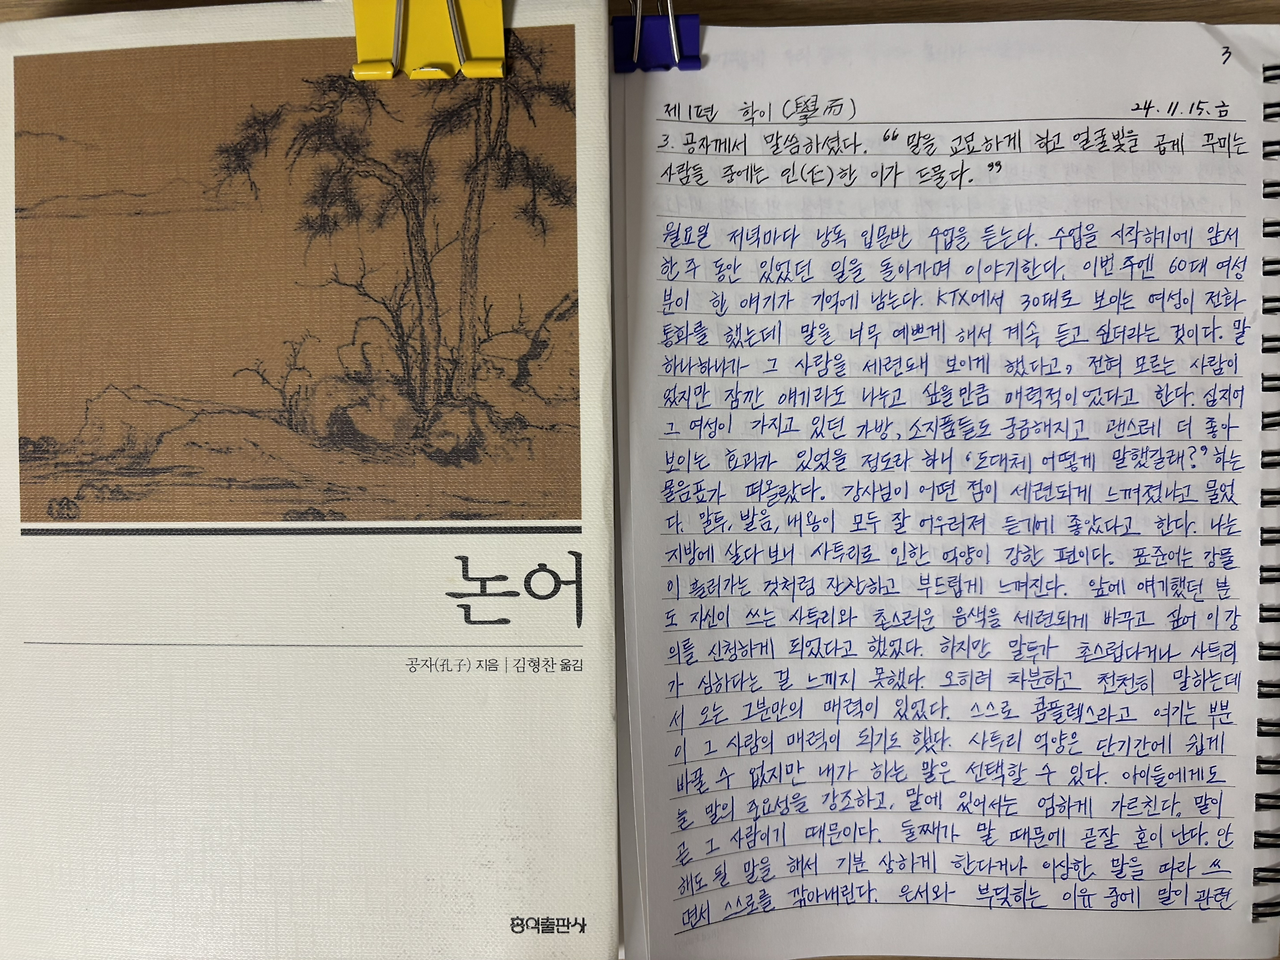 논어
공자(孔子) 지음 | 김형찬 옮김
홍익출판사
3
제1편 학이(學而) 24.11.15.금
3. 공자께서 말씀하셨다. “말을 교묘하게 하고 얼굴빛을 곱게 꾸미는
사람들 중에는 인(仁)한 이가 드물다.”
월요일 저녁마다 낭독 입문반 수업을 듣는다. 수업을 시작하기에 앞서
한 주 동안 있었던 일을 돌아가며 이야기한다. 이번 주엔 60대 여성
분이 한 얘기가 기억에 남는다. KTX에서 30대로 보이는 여성이 전화
통화를 했는데 말을 너무 예쁘게 해서 계속 듣고 싶더라는 것이다. 말
하나하나가 그 사람을 세련돼 보이게 했다고, 전혀 모르는 사람이
었지만 잠깐 얘기라도 나누고 싶을만큼 매력적이었다고 한다. 심지어
그 여성이 가지고 있던 가방, 소지품들도 궁금해지고 괜스레 더 좋아
보이는 효과가 있었을 정도라 하니 ‘도대체 어떻게 말했길래?’ 하는
물음표가 떠올랐다. 강사님이 어떤 점이 세련되게 느껴졌냐고 물었
다. 말투, 발음, 내용이 모두 잘 어우러져 듣기에 좋았다고 한다. 나는
지방에 살다 보니 사투리로 인한 억양이 강한 편이다. 표준어는 강물
이 흘러가는 것처럼 잔잔하고 부드럽게 느껴진다. 앞에 얘기했던 분
도 자신이 쓰는 사투리와 촌스러운 음색을 세련되게 바꾸고 싶어 이 강
의를 신청하게 되었다고 했었다. 하지만 말투가 촌스럽다거나 사투리
가 심하다는 걸 느끼지 못했다. 오히려 차분하고 천천히 말하는데
서 오는 그분만의 매력이 있었다. 스스로 콤플렉스라고 여기는 부분
이 그 사람의 매력이 되기도 했다. 사투리 억양은 단기간에 쉽게
바꿀 수 없지만 내가 하는 말은 선택할 수 있다. 아이들에게도
늘 말의 중요성을 강조하고, 말에 있어서는 엄하게 가르친다. 말이
곧 그 사람이기 때문이다. 둘째가 말 때문에 곧잘 혼이 난다. 안
해도 될 말을 해서 기분 상하게 한다거나 이상한 말을 따라 쓰
면서 스스로를 깎아내린다. 은서와 부딪히는 이유 중에 말이 관련